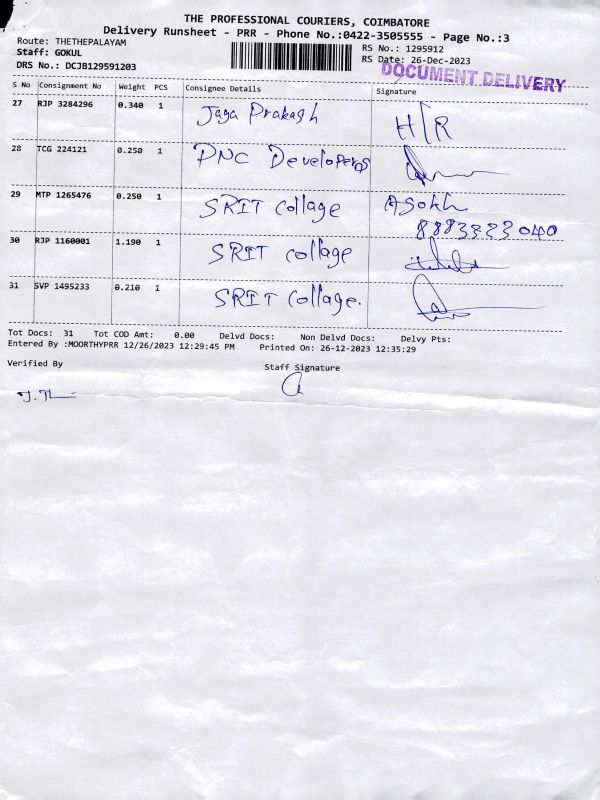 THE PROFESSIONAL COURIERS, COIMBATORE
Delivery Runsheet - PRR - Phone No.:0422-3505555 - Page No.:3
Route: THETHEPALAYAM
RS No.: 1295912
Staff: GOKUL
RS Date: 26-Dec-2023
DRS No.: DCJB129591203
DOCUMENT DELIVERY
S No Consignment No Weight PCS Consignee Details Signature
27 RJP 3284296 0.340 1 Jaya Prakash H/R
28 TCG 224121 0.250 1 PNC Developers
29 MTP 1265476 0.250 1 SRIT Collage Asokh
8883823040
30 RJP 1160001 1.190 1 SRIT Collage
31 SVP 1495233 0.210 1 SRIT Collage.
Tot Docs: 31 Tot COD Amt: 0.00 Delvd Docs: Non Delvd Docs: Delvy Pts:
Entered By :MOORTHYPRR 12/26/2023 12:29:45 PM Printed On: 26-12-2023 12:35:29
Verified By
Staff Signature